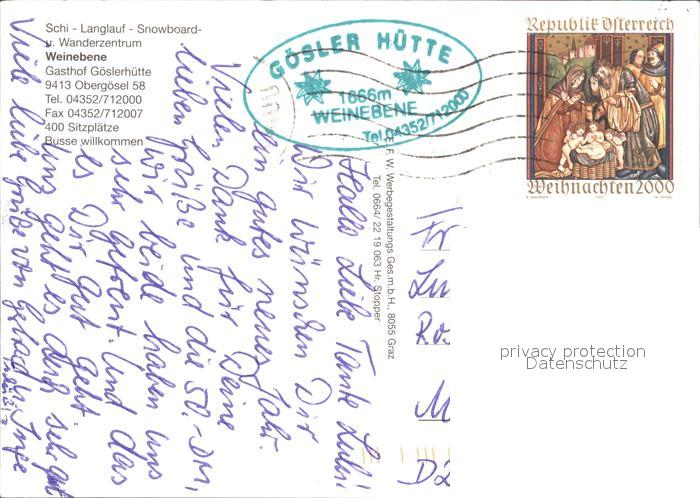 Schi - Langlauf - Snowboard-
u. Wanderzentrum
Weinebene
Gasthof Göslerhütte
9413 Obergösel 58
Tel. 04352/712000
Fax 04352/712007
400 Sitzplätze
Busse willkommen
GÖSLER HÜTTE
1666m
WEINEBENE
Tel. 04352/712000
Republik Österreich
Weihnachten 2000
F. W. Werbegestaltungs Ges.m.b.H., 8055 Graz
Tel. 0664/ 22 19 063 Hr. Stopper
Hallo Liebe Tante Luli!
Wir wünschen Dir
ein gutes neues Jahr.
Vielen Dank für Deine
lieben Grüße und die 50.-DM,
wir beide haben uns
sehr gefreut. Und das
es Dir gut geht.
uns geht es auch sehr gut
Viele liebe Grüße von Inge
Fr
Lu
Ro
M
D2
privacy protection
Datenschutz